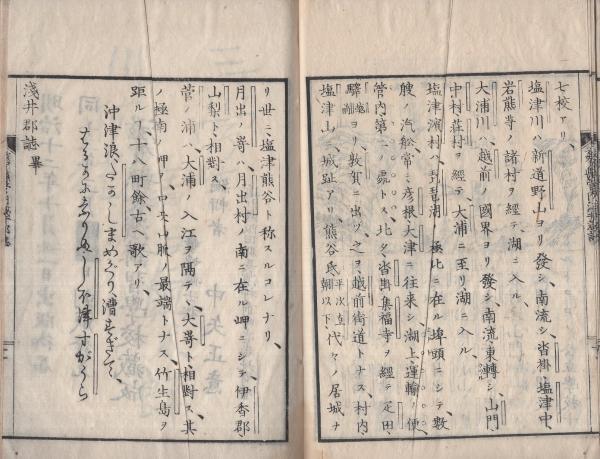 七校アリ、
塩津川ハ、新道野山ヨリ發シ、南流シ、沓掛、塩津中、
岩熊等ノ諸村ヲ經テ、湖ニ入ル、
大浦川ハ、越前ノ國界ヨリ發シ、南流、東轉シ、山門、
中村、莊村ヲ經テ、大浦ニ至リ、湖ニ入ル、
塩津濱村ハ、琵琶湖ノ極北ニ在ル埠頭ニシテ、數
艘ノ汽船常ニ彦根、大津ニ往来シ、湖上運輸ノ便、
管内第一ノ處トス、北ク沓掛、集福寺ヲ經テ、疋田、
驛ヨリ、敦賀ニ出ツ、之ヲ越前街道トナス、村内、
塩津山、城趾アリ、熊谷氏以下、代々ノ居城ナ
リ、世ニ、塩津熊谷ト称スルコレナリ、
月出ノ嵜ハ、月出村ノ南ニ在ル岬ニシテ、伊香郡、
山梨ト、相對ス、
菅ノ浦ハ、大浦ノ入江ヲ隔テ、大嵜ト、相對ス、其
ノ極南ノ岬ヲ、山脈ノ最端トナス、竹生島ヲ
距ル、十八町餘、古ヘ歌アリ、
沖津浪、たかしまめぐり漕すぎて、
はるかになりぬしほ津すがうら
淺井郡誌畢